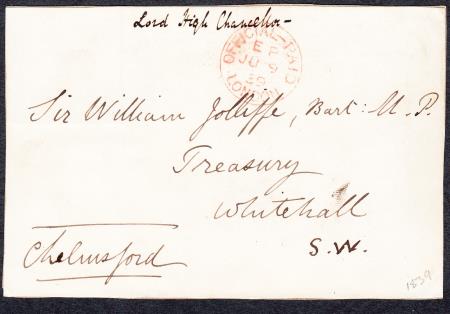 Lord High Chancellor -
OFFICIAL-PAID
EP
JU 9
LONDON
Sir William Jolliffe, Bart: M.P.
Treasury
Whitehall
S.W.
Chelmsford
1839